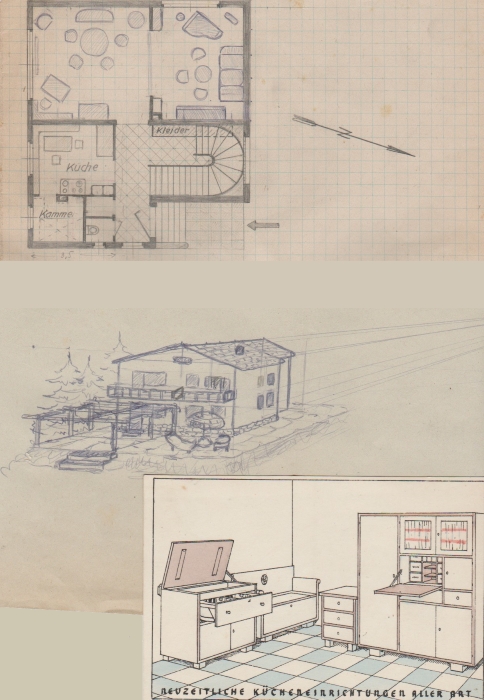 Kleider
N
Küche
Kamme
NEUZEITLICHE KÜCHENEINRICHTUNGEN ALLER ART